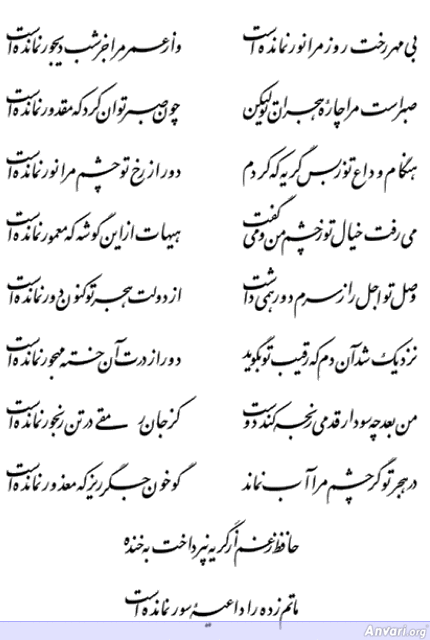 بی مهر رخت روز مرا نور نمانده است وز عمر مرا جز شب دیجور نمانده است
صبر است مرا چاره هجران تو لیکن چون صبر توان کرد که مقدور نمانده است
هنگام وداع تو ز بس گریه که کردم دور از رخ تو چشم مرا نور نمانده است
می رفت خیال تو ز چشم من و می گفت هیهات از این گوشه که معمور نمانده است
وصل تو اجل را ز سرم دور همی داشت از دولت هجر تو کنون دور نمانده است
نزدیک شد آن دم که رقیب تو بگوید دور از درت آن خسته مهجور نمانده است
من بعد چه سود ار قدمی رنجه کند دوست کز جان رمقی در تن رنجور نمانده است
در هجر تو گر چشم مرا آب نماند گو خون جگر ریز که معذور نمانده است
حافظ ز غم از گریه نپرداخت به خنده
ماتم زده را داعیه سور نمانده است
Anvari.org